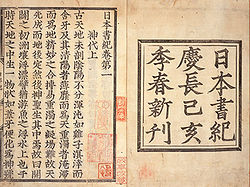 日本書紀
慶長己亥
季春新刊
日本書紀卷第一
神代上
古天地未剖陰陽不分渾沌如雞子溟涬而
含牙及其清陽者薄靡而爲天重濁者淹滯
而爲地精妙之合搏易重濁之凝竭難故天
先成而地後定然後神聖生其中焉故曰開
闢之初洲壤浮漂譬猶游魚之浮水上也于
時天地之中生一物狀如葦牙便化爲神號